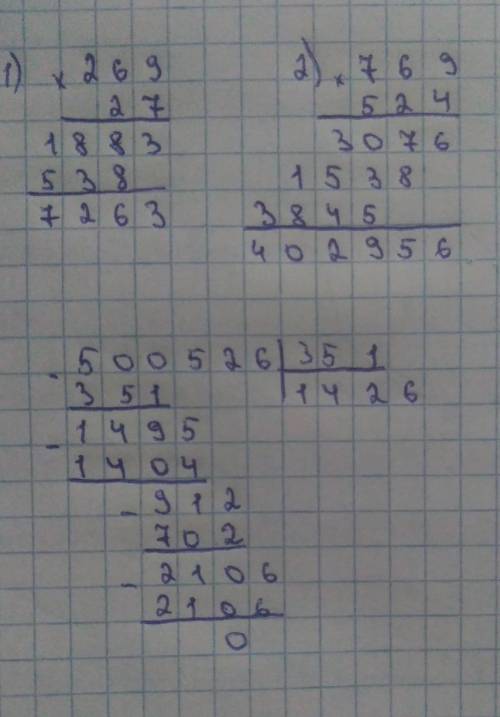 1) × 269
27
1883
538
7263
2) × 769
524
3076
1538
3845
402956
- 500526 351
351 1426
- 1495
1404
- 912
702
- 2106
2106
0